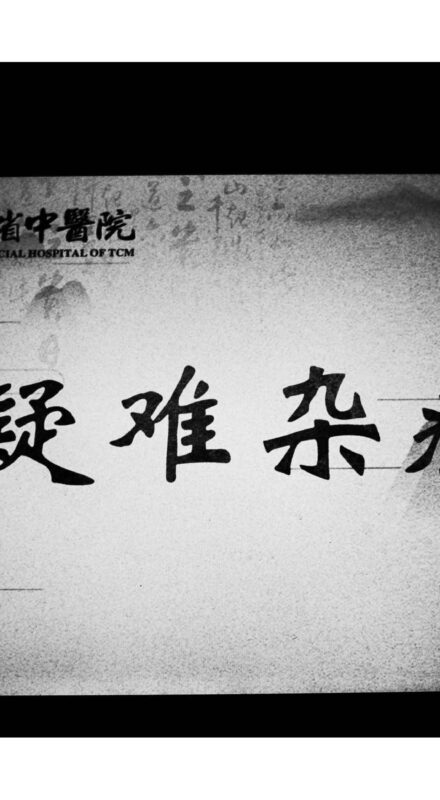 省中醫院
CIAL HOSPITAL OF TCM
疑难杂